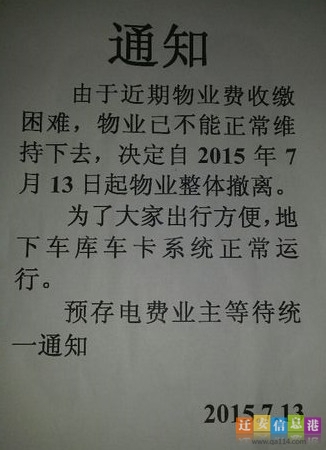 通知
由于近期物业费收缴
困难，物业已不能正常维
持下去，决定自 2015 年 7
月 13 日起物业整体撤离。
为了大家出行方便，地
下车库车卡系统正常运
行。
预存电费业主等待统
一通知
2015.7.13
迁安信息港
www.qa114.com